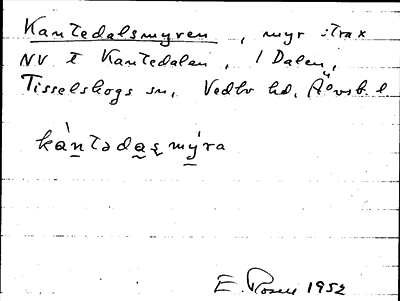 Kantedalsmyren, myr strax
NV t Kantedalen, i Dalen,
Tisselskogs sn, Vedbo hd, Älvsb. l
kántədaʂmýra
E. Rosell 1952